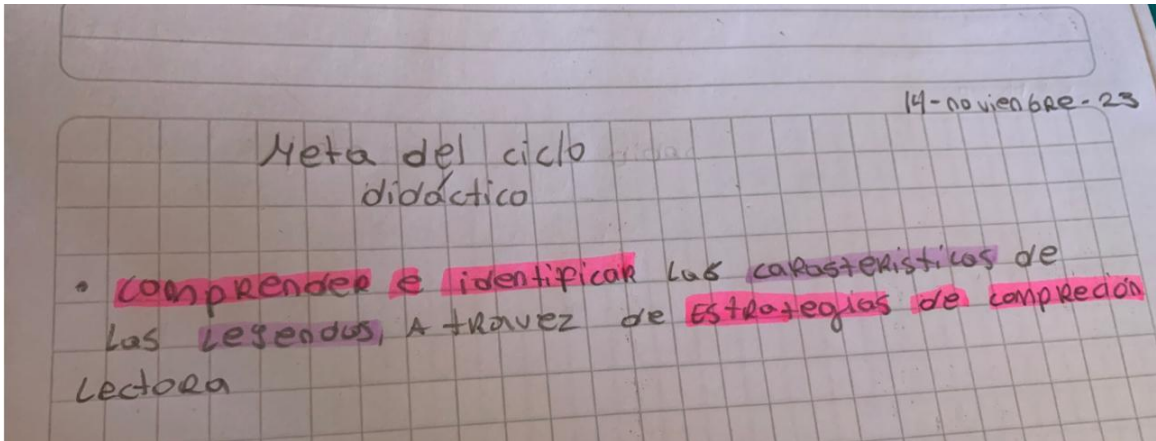 14-novienbRe-23
Meta del ciclo
didáctico
• compRendeR e identificaR Las caRasteRisticas de
Las Leyendas, A tRavez de EstRategias de compRecion
LectoRa